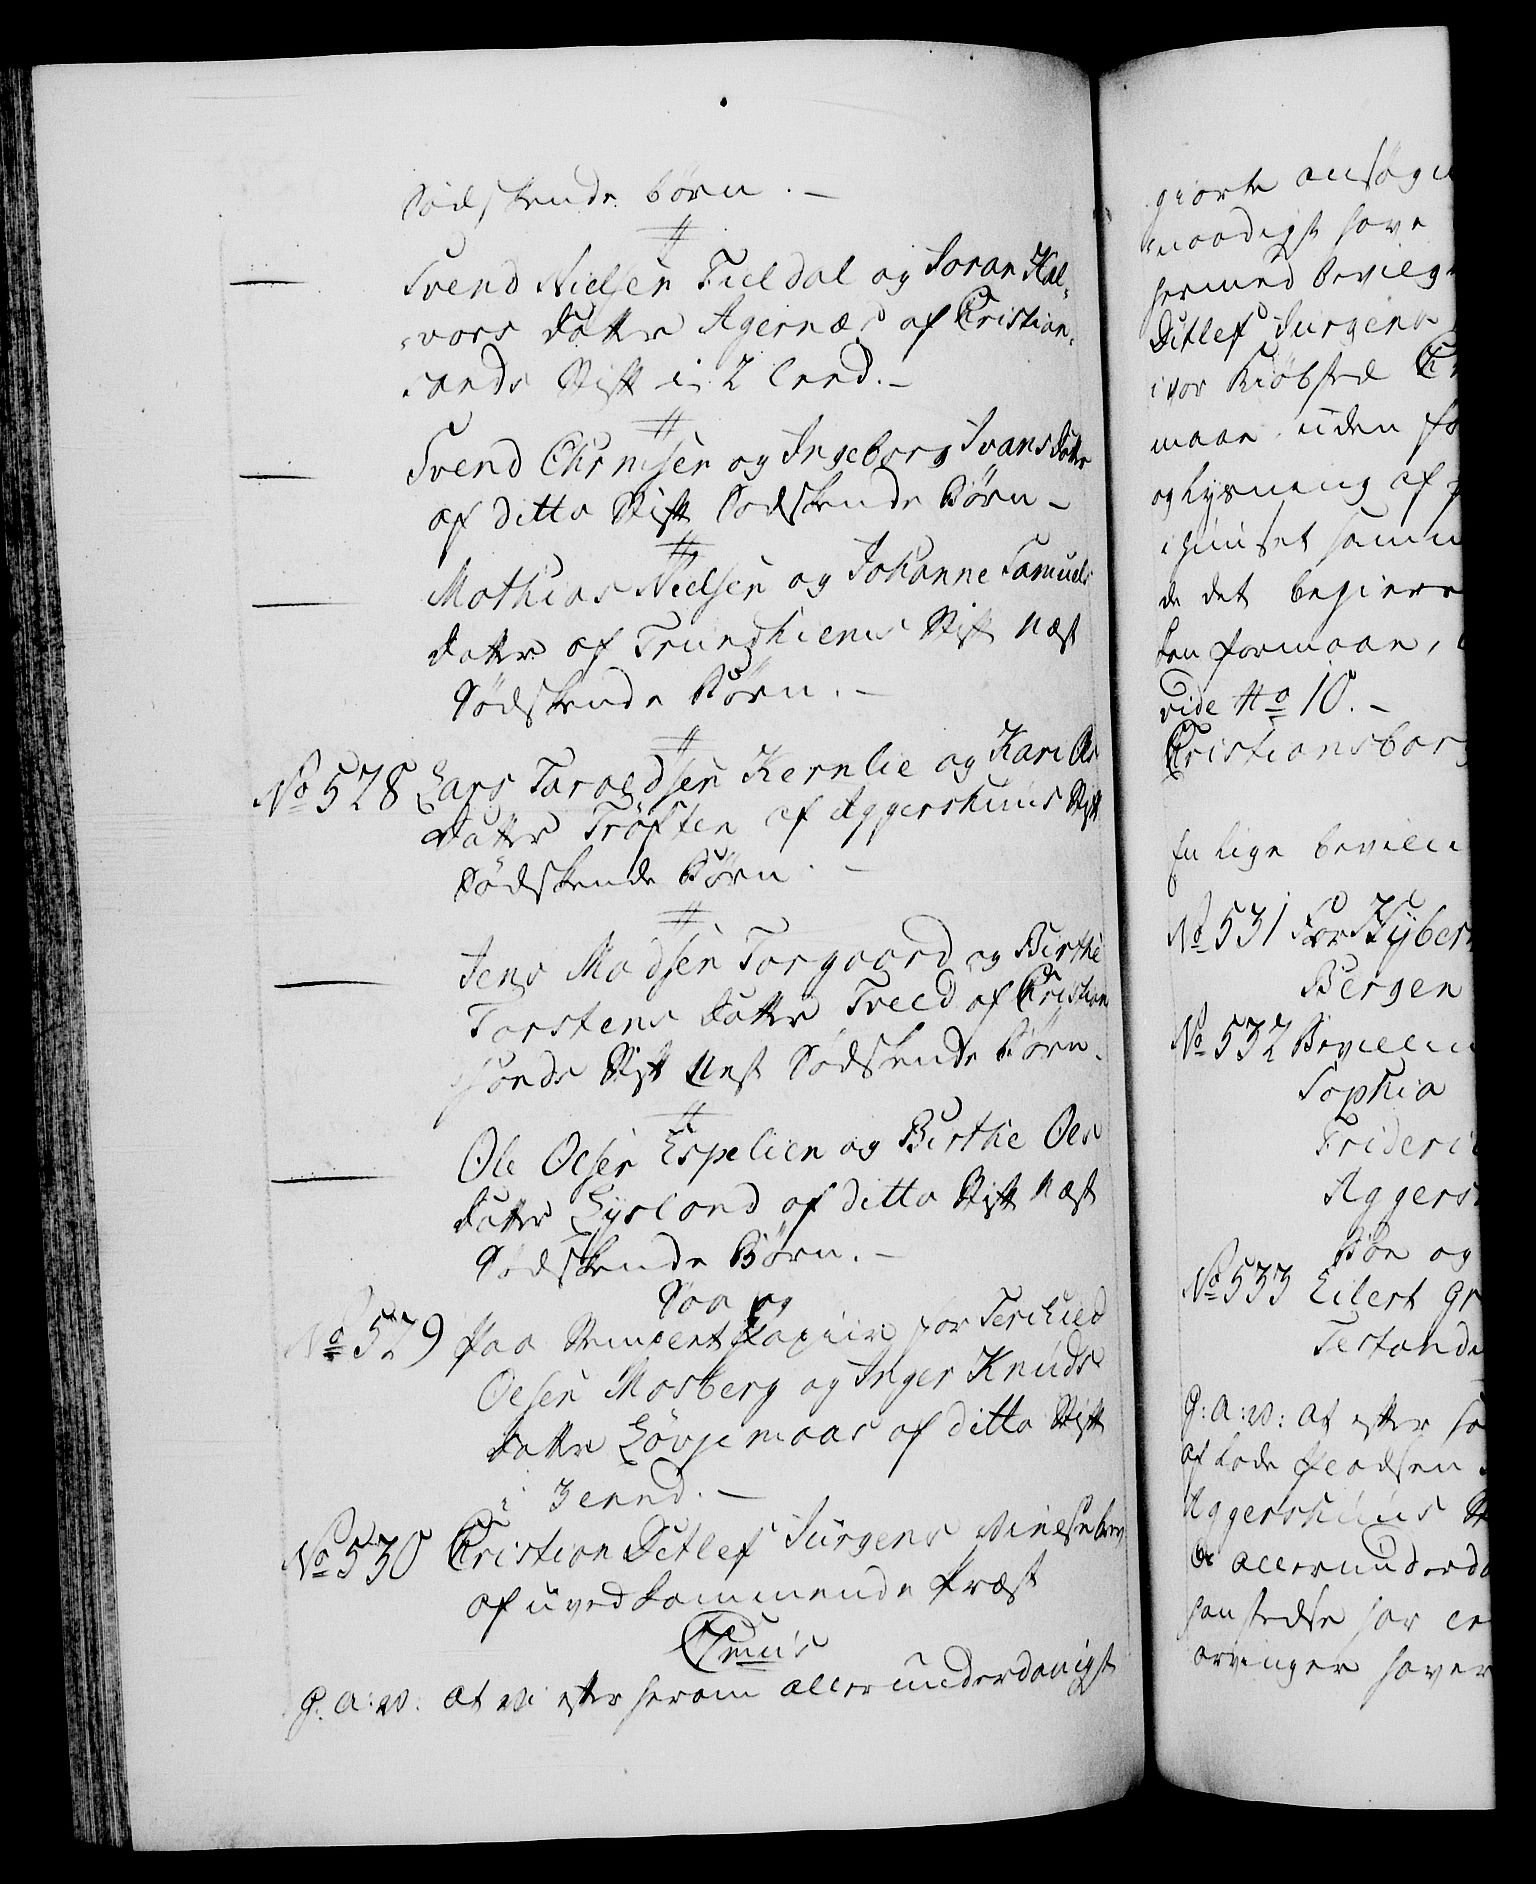 Södskende börn. -
#
Svend Nielsen Fieldal og Soran Hal-
vors datter Agernæs af Cristian-
sands Stift i 2 Leed. -
#
Svend Chrnsen og Ingeborg Ivansdatter
af ditto Stift Södskende Börn -
#
Mathias Nielsen og Johanne Samuels
datter af Trundhiems Stift næst
Södskende Börn. -
#
No 528 Lars Taraldsen Kernlie og Kari Ols
datter Tröften af Aggershuus Stift
Södskende Börn. -
#
Jens Madsen Torgaard og Birthe
Torstens datter Tveed af Cristian
sands Stift Nest Södskende Börn.
#
Ole Olsen Espelien og Birthe Oles
datter Eyeland af ditto Stift næst
Södskende Börn. -
Saa og
No 529 Paa Stemplet Papiir for Terkield
Olsen Mosberg og Inger Knuds
datter Lövjemoas af ditto Stift
i 3 Leed. -
No 530 Cristian Ditlef Jürgens Vielsebrev
af uvedkommende Præst
G: A: V: at Vi efter herom allerunderdanigst
giorte ansögn
naadigst have
hermed bevilg
Ditlef Jürgens
i vor Kiöbsted
maae uden
og Lysning af
i huuset samm
de det begiere
ken formaae,
vide No 10. -
Cristiansborg
En lige bevilli
No 531 For
Bergen
No 532 Bevilli
Sophia
Frideri
Aggers
Böe og
No 533 Eilert Gr
Testande
G: A: V: At efter
Aggershuus St
allerunderda
arvinger haver